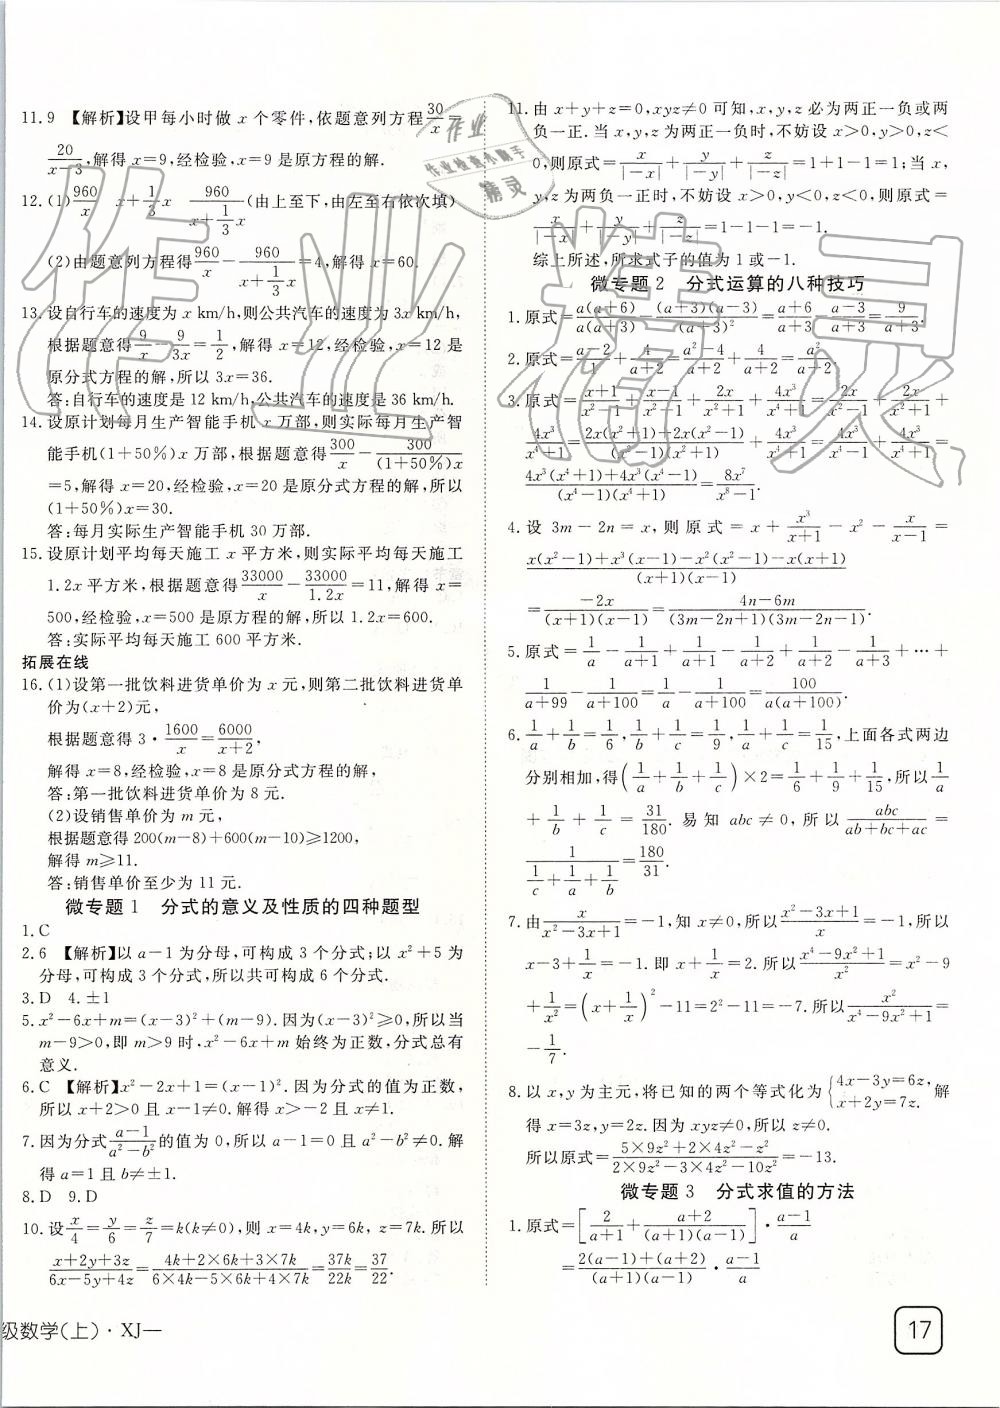 11.9 【解析】设甲每小时做 x 个零件,依题意列方程 30/x =
20/(x-3),解得 x=9,经检验,x=9 是原方程的解.
12.(1) 960/x  x+1/3x  960/(x+1/3x) (由上至下,由左至右依次填)
(2)由题意列方程得 960/x - 960/(x+1/3x) =4,解得 x=60.
13.设自行车的速度为 x km/h,则公共汽车的速度为 3x km/h,
根据题意得 9/x - 9/3x = 1/2,解得 x=12,经检验,x=12 是
原分式方程的解,所以 3x=36.
答:自行车的速度是 12 km/h,公共汽车的速度是 36 km/h.
14.设原计划每月生产智能手机 x 万部,则实际每月生产智
能手机(1+50%)x 万部,根据题意得 300/x - 300/((1+50%)x)
=5,解得 x=20,经检验,x=20 是原分式方程的解,所以
(1+50%)x=30.
答:每月实际生产智能手机 30 万部.
15.设原计划平均每天施工 x 平方米,则实际平均每天施工
1.2x 平方米,根据题意得 33000/x - 33000/1.2x =11,解得 x=
500,经检验,x=500 是原方程的解,所以 1.2x=600.
答:实际平均每天施工 600 平方米.
拓展在线
16.(1)设第一批饮料进货单价为 x 元,则第二批饮料进货单
价为(x+2)元,
根据题意得 3· 1600/x = 6000/(x+2),
解得 x=8,经检验,x=8 是原分式方程的解,
答:第一批饮料进货单价为 8 元.
(2)设销售单价为 m 元,
根据题意得 200(m-8)+600(m-10)≥1200,
解得 m≥11.
答:销售单价至少为 11 元.
微专题 1 分式的意义及性质的四种题型
1.C
2.6 【解析】以 a-1 为分母,可构成 3 个分式;以 x²+5 为
分母,可构成 3 个分式,所以共可构成 6 个分式.
3.D 4.±1
5.x²-6x+m=(x-3)²+(m-9).因为(x-3)²≥0,所以当
m-9>0,即 m>9 时,x²-6x+m 始终为正数,分式总有
意义.
6.C 【解析】x²-2x+1=(x-1)².因为分式的值为正数,
所以 x+2>0 且 x-1≠0.解得 x>-2 且 x≠1.
7.因为分式 (a-1)/(a²-b²) 的值为 0,所以 a-1=0 且 a²-b²≠0.解
得 a=1 且 b≠±1.
8.D 9.D
10.设 x/4 = y/6 = z/7 =k(k≠0),则 x=4k,y=6k, z=7k.所以
(x+2y+3z)/(6x-5y+4z) = (4k+2×6k+3×7k)/(6×4k-5×6k+4×7k) = 37k/22k = 37/22.
级数学(上)·XJ—
11.由 x+y+z=0,xyz≠0 可知,x,y,z 必为两正一负或两
负一正.当 x,y,z 为两正一负时,不妨设 x>0,y>0,z<
0,则原式= x/|-x| + y/|-y| + z/|-z| =1+1-1=1;当 x,
y,z 为两负一正时,不妨设 x>0,y<0,z<0,则原式=
x/|-x| + y/|-y| + z/|-z| =1-1-1=-1.
综上所述,所求式子的值为 1 或-1.
微专题 2 分式运算的八种技巧
1.原式= a(a+6)/a(a+3) - (a+3)(a-3)/(a+3)² = (a+6)/(a+3) - (a-3)/(a+3) = 9/(a+3).
2.原式= (a-2)/1 + 4/(a+2) = (a²-4)/(a+2) + 4/(a+2) = a²/(a+2)
3.原式= (x+1)/(x²-1) + (x-1)/(x²-1) + 2x/(x²+1) + 4x³/(x⁴+1) = 2x/(x²-1) + 2x/(x²+1) +
4x³/(x⁴+1) = (2x(x²+1)+2x(x²-1))/(x⁴-1) + 4x³/(x⁴+1) = 4x³/(x⁴-1) + 4x³/(x⁴+1) =
(4x³(x⁴+1)+4x³(x⁴-1))/((x⁴-1)(x⁴+1)) = 8x⁷/(x⁸-1).
4.设 3m-2n=x,则原式=x+ x³/(x+1) -x²- x/(x-1) =
(x(x²-1)+x³(x-1)-x²(x²-1)-x(x+1))/((x+1)(x-1))
= -2x/((x+1)(x-1)) = (4n-6m)/((3m-2n+1)(3m-2n-1)).
5.原式= 1/a - 1/(a+1) + 1/(a+1) - 1/(a+2) + 1/(a+2) - 1/(a+3) +…+
1/(a+99) - 1/(a+100) = 1/a - 1/(a+100) = 100/(a(a+100)).
6. 1/a + 1/b = 1/6, 1/b + 1/c = 1/9, 1/a + 1/c = 1/15,上面各式两边
分别相加,得(1/a + 1/b + 1/c)×2= 1/6 + 1/9 + 1/15,所以 1/a
+ 1/b + 1/c = 31/180. 易知 abc≠0,所以 abc/(ab+bc+ac) =
1/(1/c + 1/a + 1/b) = 180/31.
7.由 x/(x²-3x+1) =-1,知 x≠0,所以 (x²-3x+1)/x =-1,所以
x-3+ 1/x =-1.即 x+ 1/x =2.所以 (x⁴-9x²+1)/x² =x²-9
+ 1/x² =(x+ 1/x)²-11=2²-11=-7.所以 x²/(x⁴-9x²+1) =
- 1/7.
8.以 x,y 为主元,将已知的两个等式化为{4x-3y=6z, x+2y=7z. 解
得 x=3z,y=2z.因为 xyz≠0,所以 z≠0.
所以原式= (5×9z²+2×4z²-z²)/(2×9z²-3×4z²-10z²) =-13.
微专题 3 分式求值的方法
1.原式=[2/(a+1) + (a+2)/((a+1)(a-1))]· (a-1)/a
= (2(a-1)+(a+2))/((a+1)(a-1)) · (a-1)/a
17
作业精灵
作业
作业检查小助手
精灵